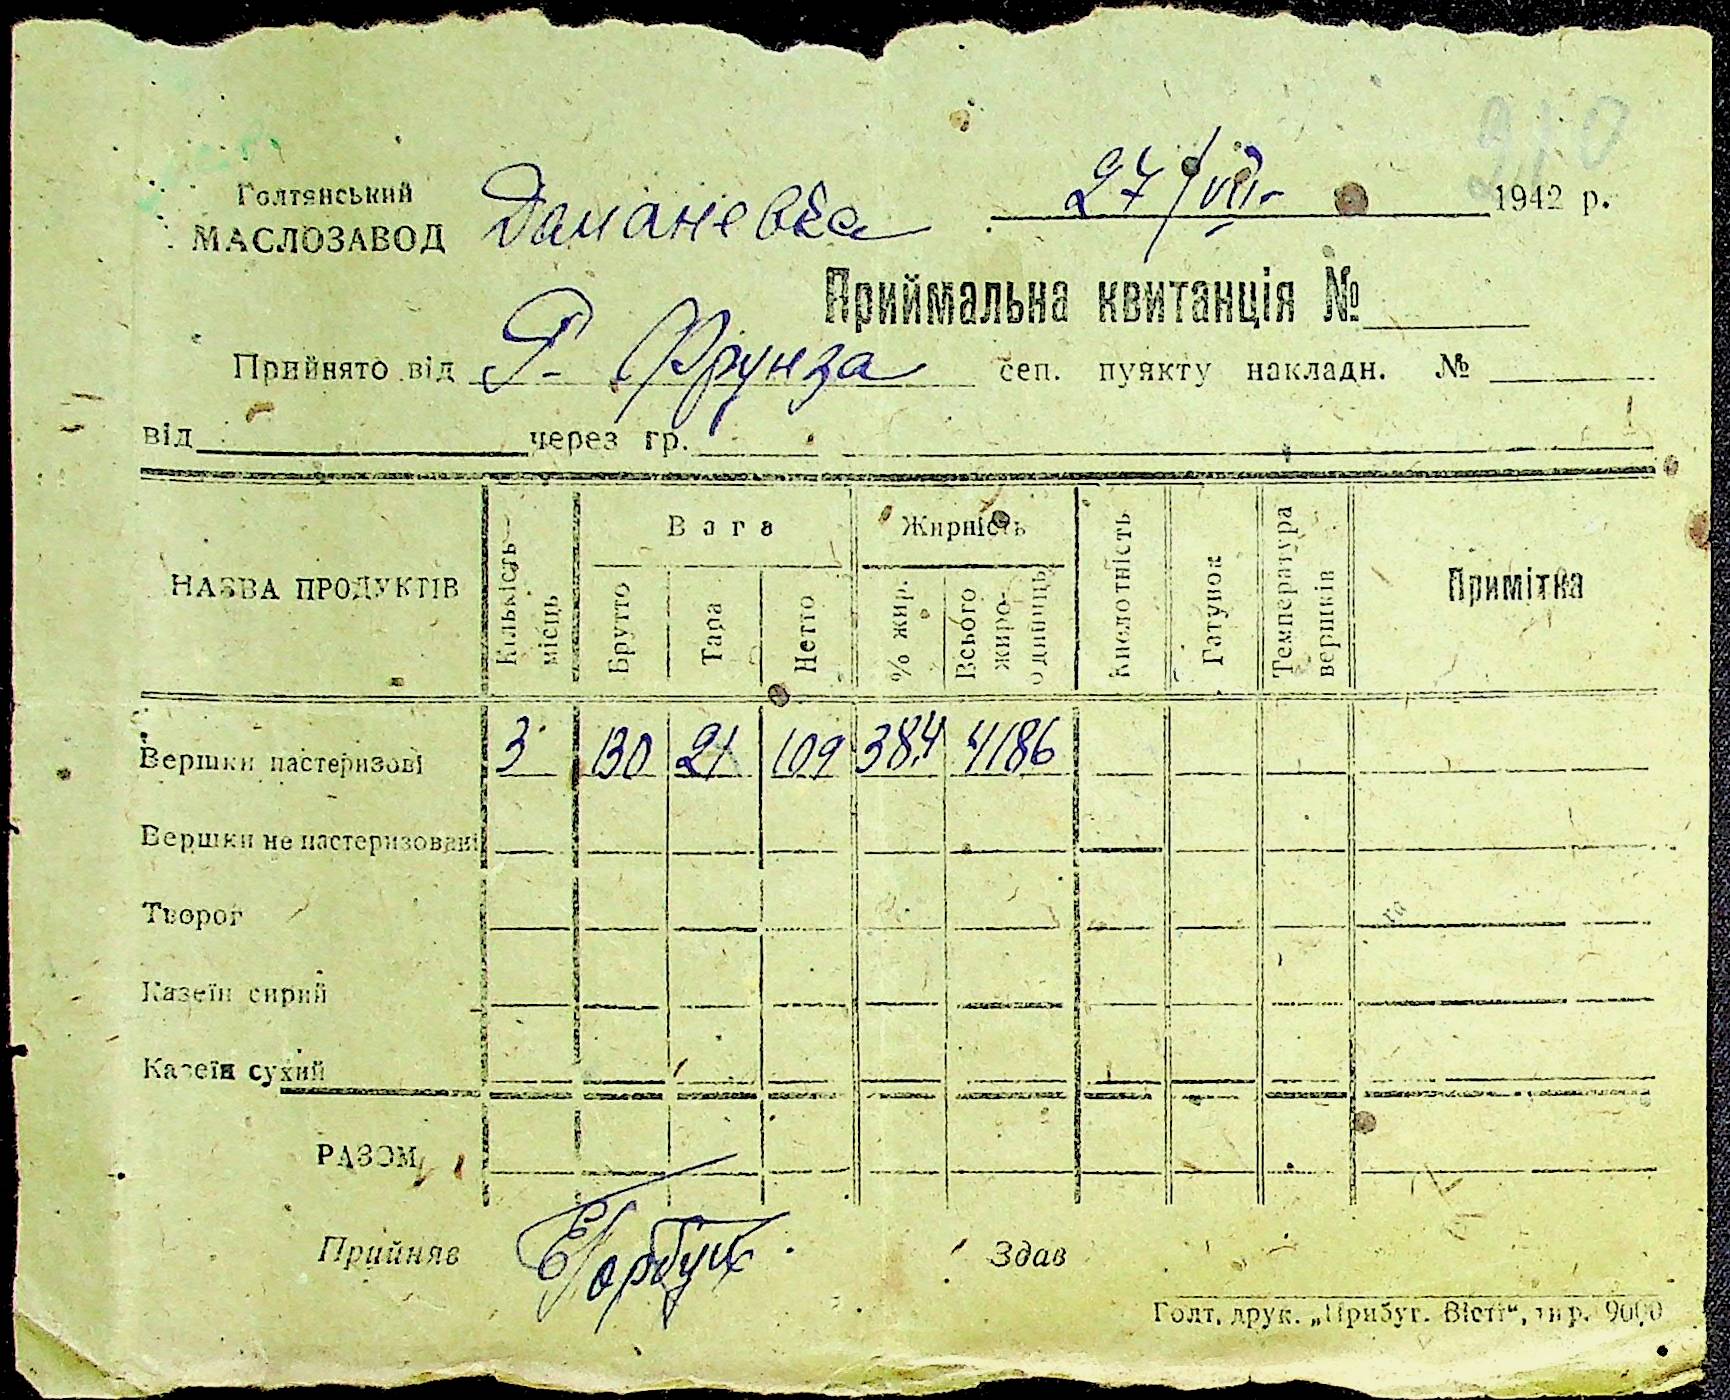 210
Голтянський
МАСЛОЗАВОД Доманевка 27/VII- 1942 р.
Приймальна квитанція №
Прийнято від Г- Фрунза сеп. пункту накладн. №
від через гр.
НАЗВА ПРОДУКТІВ Кількість місць Вага Брутто Тара Нетто Жирність % жир. Всього жиро-одиниць Кислотність Гатунок Температура вершків Примітка
Вершки пастеризові 3 130 21 109 38,4 4186
Вершки не пастеризовані
Творог
Казеїн сирий
Казеїн сухий
РАЗОМ
Прийняв Здав
Голт. друк. „Прибуг. Вісті“, тир. 9000